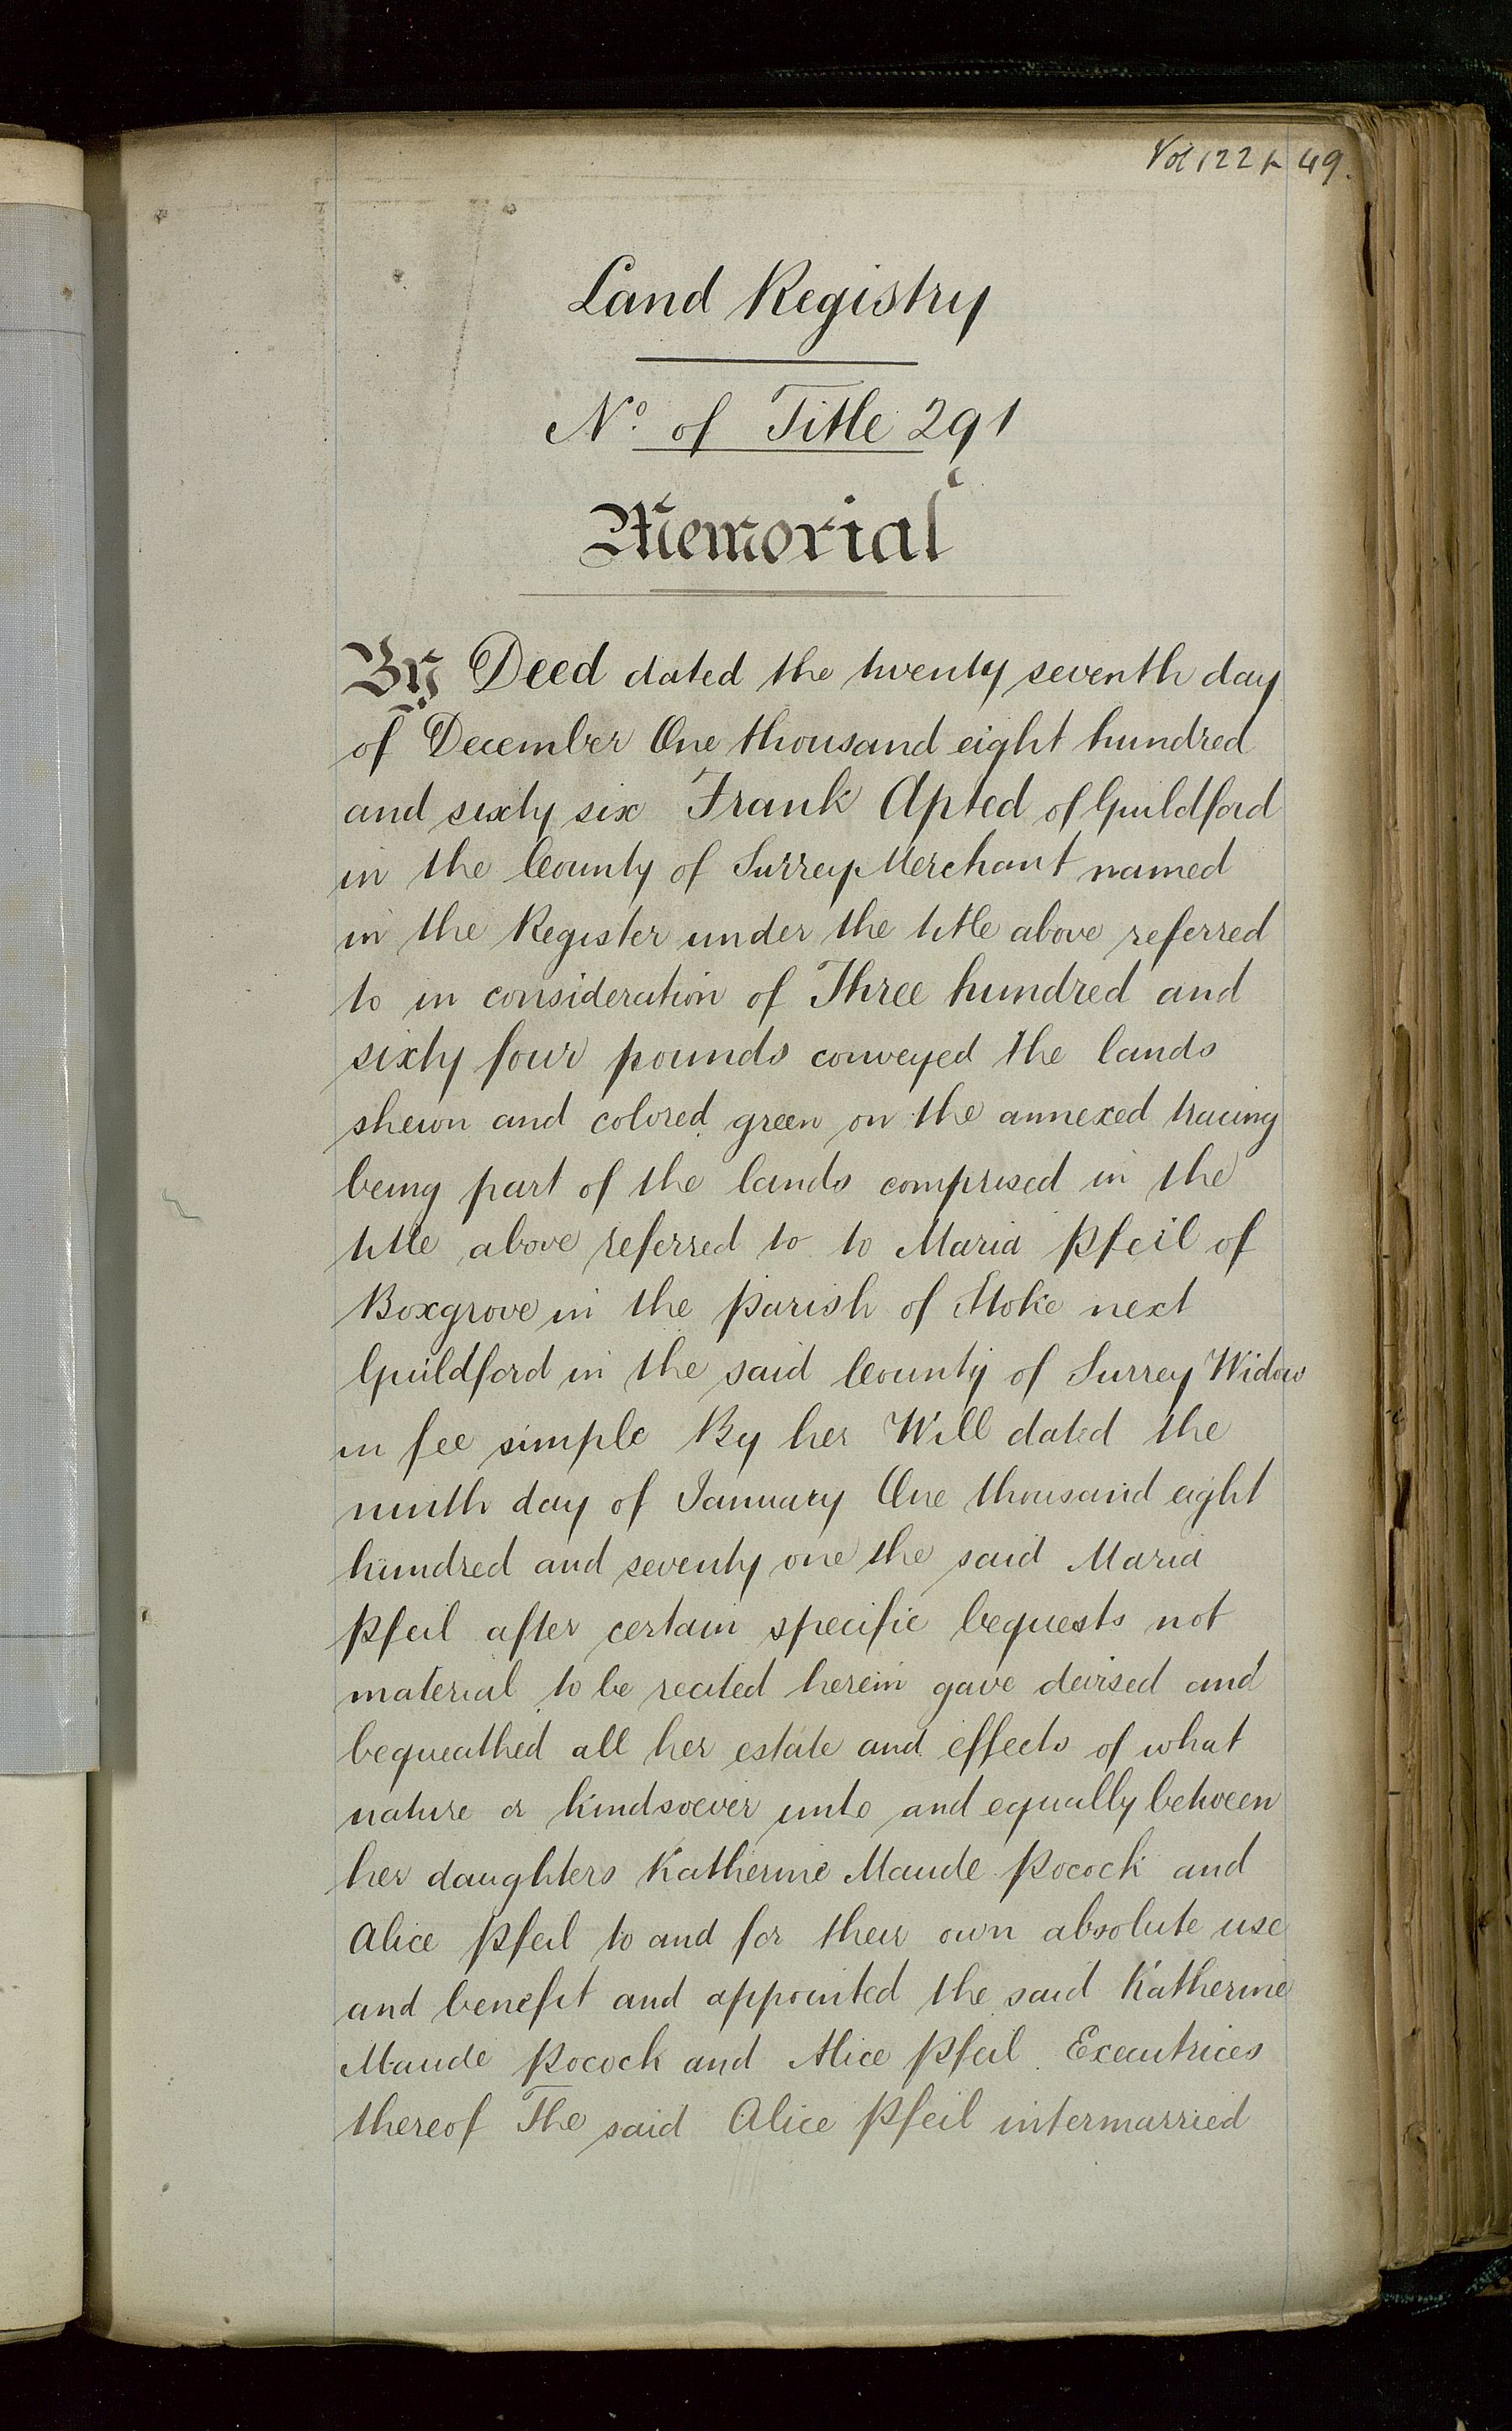 Vol 122 p 49.
Land Registry
No. of Title 291
Memorial
By Deed dated the twenty seventh day
of December One thousand eight hundred
and sixty six Frank Apted of Guildford
in the County of Surrey Merchant named
in the Register under the title above referred
to in consideration of Three hundred and
sixty four pounds conveyed the lands
shewn and colored green on the annexed tracing
being part of the lands comprised in the
title above referred to to Maria Pfeil of
Boxgrove in the parish of Stoke next
Guildford in the said County of Surrey Widow
in fee simple By her Will dated the
ninth day of January One thousand eight
hundred and seventy one the said Maria
Pfeil after certain specific bequests not
material to be recited herein gave devised and
bequeathed all her estate and effects of what
nature or kindsoever unto and equally between
her daughters Katherine Maude Pocock and
Alice Pfeil to and for their own absolute use
and benefit and appointed the said Katherine
Maude Pocock and Alice Pfeil Executrices
thereof The said Alice Pfeil intermarried